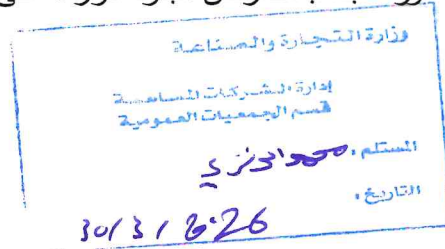 وزارة التجارة والصناعة
إدارة الشركات المساهمة
قسم الجمعيات العمومية
المستلم: محمد العنزي
التاريخ:
30/3/2026